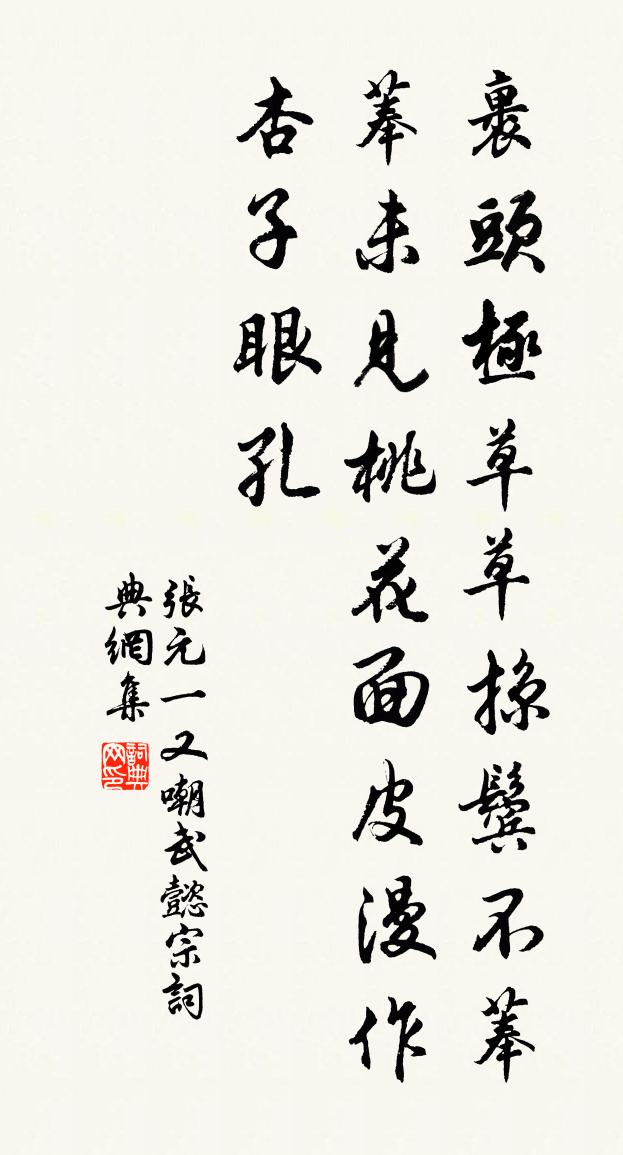 裹頭極草草掠鬢不菶
菶未見桃花面皮漫作
杏子眼孔
張元一又嘲武懿宗詞
典網集
詞典網印